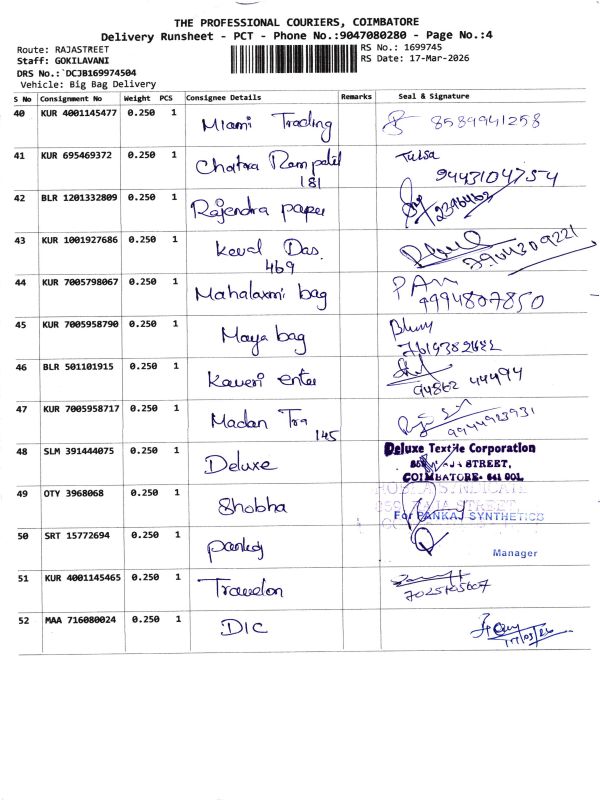 THE PROFESSIONAL COURIERS, COIMBATORE
Delivery Runsheet - PCT - Phone No.:9047080280 - Page No.:4
Route: RAJASTREET
RS No.: 1699745
Staff: GOKILAVANI
RS Date: 17-Mar-2026
DRS No.:`DCJB169974504
Vehicle: Big Bag Delivery
S No Consignment No Weight PCS Consignee Details Remarks Seal & Signature
40 KUR 4001145477 0.250 1 Miami Trading 8589941258
41 KUR 695469372 0.250 1 Chatra Ram patel Tulsa
181 9443104754
42 BLR 1201332809 0.250 1 Rajendra paper
43 KUR 1001927686 0.250 1 Keval Das.
469 7904309221
44 KUR 7005798067 0.250 1 Mahalaxmi bag
9994807850
45 KUR 7005958790 0.250 1 Maya bag
46 BLR 501101915 0.250 1 Kaveri enter
94862 44494
47 KUR 7005958717 0.250 1 Madan Tra
145 9944923931
48 SLM 391444075 0.250 1 Deluxe Deluxe Textile Corporation
RAJA STREET,
COIMBATORE- 641 001.
49 OTY 3968068 0.250 1 Shobha
SYNDICATE
RAJA STREET
For PANKAJ SYNTHETICS
50 SRT 15772694 0.250 1 pankaj
Manager
51 KUR 4001145465 0.250 1 Travelon
7025105607
52 MAA 716080024 0.250 1 DIC
17/03/26